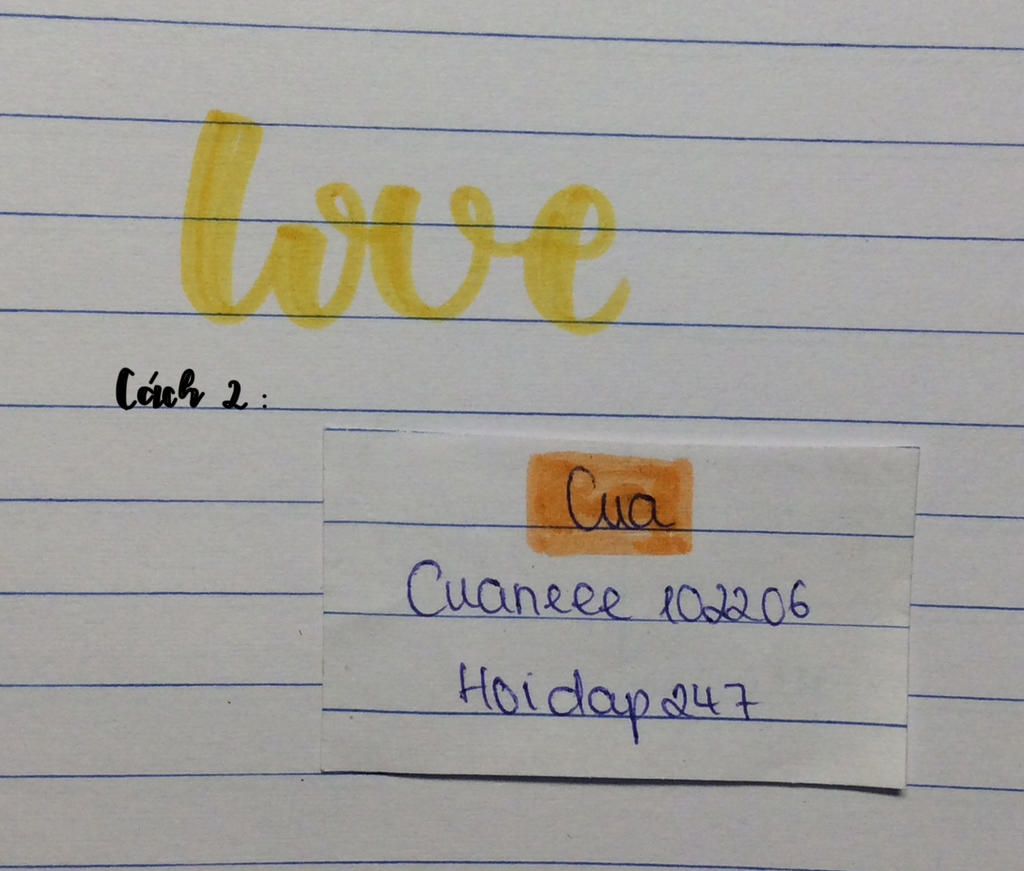 love
Cách 2:
Cua
Cuaneee 102206
Hoidap247